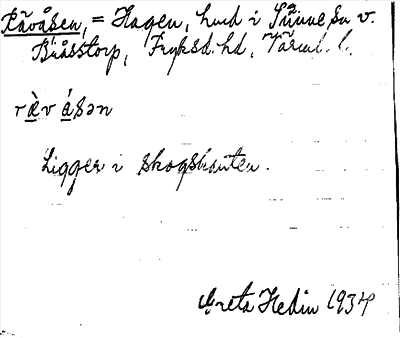 Rävåsen, = Hagen, hmd i Sunne sn v.
Båsstorp, Fryksd. hd, Värml. l.
rä̀v ásən
Ligger i skogskanten.
Greta Hedin 1934